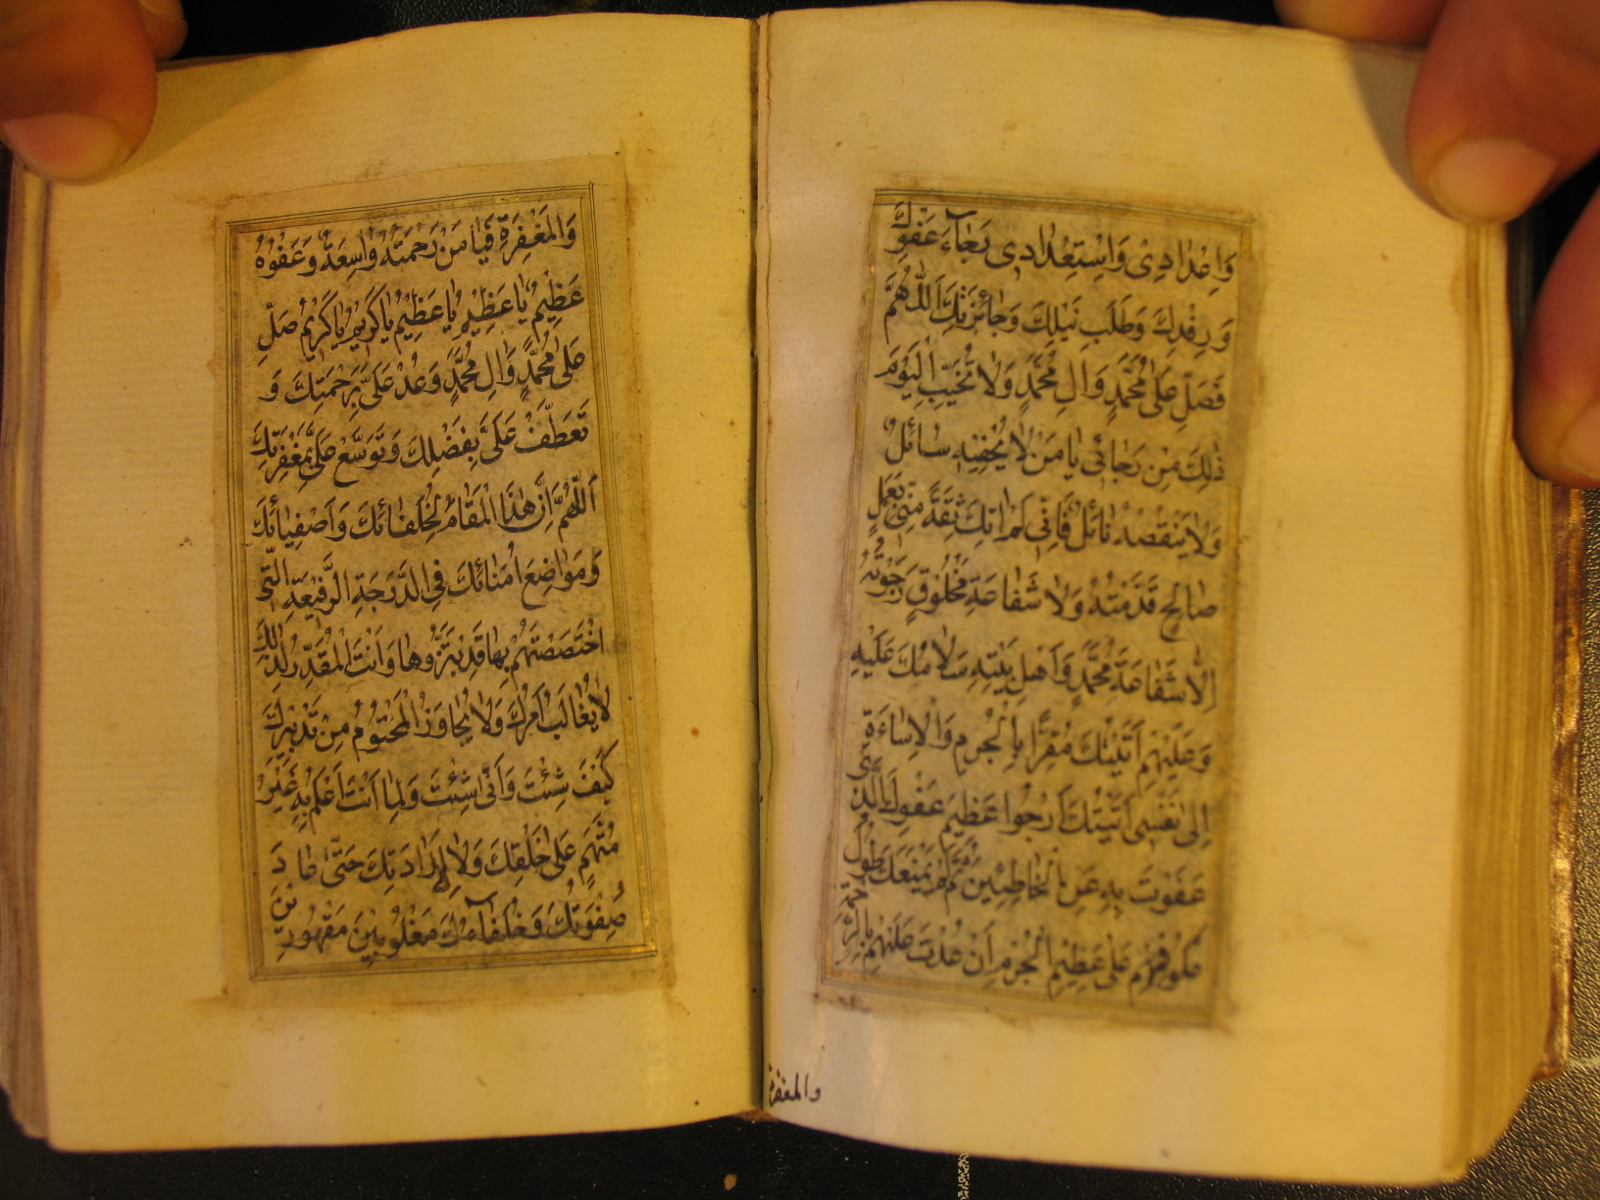 وَاِعْدَادِى وَاسْتِعْدَادِى رَجَآءَ عَفْوِكَ
وَرِفْدِكَ وَطَلَبَ نَيْلِكَ وَجَائِزَتِكَ اَللّٰهُمَّ
فَصَلِّ عَلٰى مُحَمَّدٍ وَاٰلِ مُحَمَّدٍ وَلَا تُخَيِّبِ الْيَوْمَ
ذٰلِكَ مِنْ رَجَائِى يَا مَنْ لَا يُحْفِيهِ سَائِلٌ
وَلَا يَنْقُصُهُ نَائِلٌ فَاِنِّى لَمْ اٰتِكَ ثِقَةً مِنِّى بِعَمَلٍ
صَالِحٍ قَدَّمْتُهُ وَلَا شَفَاعَةِ مَخْلُوقٍ رَجَوْتُهُ
اِلَّا شَفَاعَةَ مُحَمَّدٍ وَاَهْلِ بَيْتِهِ سَلَامُكَ عَلَيْهِ
وَعَلَيْهِمْ اَتَيْتُكَ مُقِرًّا بِالْجُرْمِ وَالْاِسَاءَةِ
اِلٰى نَفْسِى اَتَيْتُكَ اَرْجُوا عَظِيمَ عَفْوِكَ الَّذِى
عَفَوْتَ بِهِ عَنِ الْخَاطِئِينَ ثُمَّ لَمْ يَمْنَعْكَ طُولُ
عُكُوفِهِمْ عَلٰى عَظِيمِ الْجُرْمِ اَنْ عُدْتَ عَلَيْهِمْ بِالرَّحْمَةِ
والمغفرة
وَالْمَغْفِرَةِ فَيَا مَنْ رَحْمَتُهُ وَاسِعَةٌ وَعَفْوُهُ
عَظِيمٌ يَا عَظِيمُ يَا عَظِيمُ يَا كَرِيمُ يَا كَرِيمُ صَلِّ
عَلٰى مُحَمَّدٍ وَاٰلِ مُحَمَّدٍ وَعُدْ عَلَىَّ بِرَحْمَتِكَ وَ
تَعَطَّفْ عَلَىَّ بِفَضْلِكَ وَتَوَسَّعْ عَلَىَّ بِمَغْفِرَتِكَ
اَللّٰهُمَّ اِنَّ هٰذَا الْمَقَامَ لِخُلَفَائِكَ وَاَصْفِيَائِكَ
وَمَوَاضِعَ اُمَنَائِكَ فِى الدَّرَجَةِ الرَّفِيعَةِ الَّتِى
اخْتَصَصْتَهُمْ بِهَا قَدِ ابْتَزُّوهَا وَاَنْتَ الْمُقَدِّرُ لِذٰلِكَ
لَا يُغَالَبُ اَمْرُكَ وَلَا يُجَاوَزُ الْمَحْتُومُ مِنْ تَدْبِيرِكَ
كَيْفَ شِئْتَ وَاَنّٰى شِئْتَ وَلِمَا اَنْتَ اَعْلَمُ بِهِ غَيْرُ
مُتَّهَمٍ عَلٰى خَلْقِكَ وَلَا لِاِرَادَتِكَ حَتّٰى عَادَ
صِفْوَتُكَ وَخُلَفَآءُكَ مَغْلُوبِينَ مَقْهُورِينَ